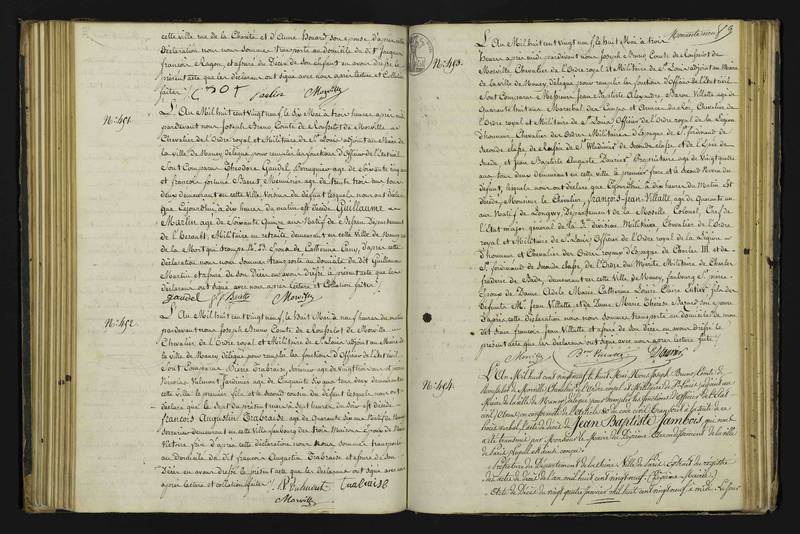 cette ville rue de la Charité et d'Anne Houard son épouse d'après cette
Déclaration nous nous sommes transporté au domicile du dit Jacques
françois Ragon, et assuré du Décès de son enfant en avons dressé le
présent acte que les déclarans ont signé avec nous après lecture et Collation
faites
Morville
N.° 451.
L'An Mil huit cent vingt neuf, le dix Mai à trois heures après midi
pardevant nous Joseph Bruno Comte de de Morville
Chevalier de l'Ordre royal et Militaire de S.t Louis adjoint au Maire de
la ville de Nancy délégué pour remplir les fonctions d'Officier de l'Etat civil
Sont Comparus Théodore Gaudel, Perruquier agé de Soixante ans
et françois fortuné Menuisier agé de trente trois ans tous
deux demeurant en cette Ville Voisins du défunt lesquels nous ont déclaré
que Cejourd'hui à dix heures du matin est décédé Guillaume
Martin agé de Soixante Quinze ans Natif de Département
de l'Herault, Militaire en retraite demeurant en cette Ville de Nancy rue
de la N.° 33 Epoux de Catherine Cany, d'après cette
déclaration nous nous sommes transporté au domicile du dit Guillaume
Martin et assuré de son Décès en avons dressé le présent acte que les
déclarans ont signé avec nous après Lecture et Collation faites
gaudel Morville
N.° 452.
L'An Mil huit cent vingt neuf, le huit Mai à neuf heures du matin
pardevant nous Joseph Bruno Comte de de Morville
Chevalier de l'Ordre royal et Militaire de S.t Louis adjoint au Maire de
la ville de Nancy délégué pour remplir les fonctions d'Officier de l'Etat civil
Sont Comparus Pierre Trabraise, Serrurier agé de vingt ans et
Valmont Jardinier agé de Cinquante Six ans tous deux demeurant en
cette Ville le premier fils et le Second cousin du défunt lesquels nous ont
déclaré que le Sept du présent mois à Sept heures du Soir est décédé
françois Augustin Trabraise agé de Quarante Six ans Natif de Nancy
Serrurier demeurant en cette Ville faubourg des trois Maisons Epoux de
Victoire d'après cette déclaration nous nous sommes transporté
au Domicile du dit françois Augustin Trabraise et assuré de Son
Décès en avons dressé le présent acte que les déclarans ont signé avec nous
après lecture et collation faites
Trabraise
Morville
N.° 453.
L'An Mil huit cent vingt neuf, le huit Mai à trois
heures après midi pardevant nous Joseph Bruno Comte de de
Morville, Chevalier de l'Ordre royal et Militaire de S.t Louis adjoint au Maire
de la ville de Nancy délégué pour remplir les fonctions d'Officier de l'état civil
Sont Comparus Messieurs Jean Baptiste Alexandre Baron Villatte agé de
Quarante huit ans Maréchal des Camps et Armées du Roi, Chevalier de
l'Ordre royal et Militaire de S.t Louis Officier de l'Ordre royal de la Légion
d'honneur Chevalier des Ordres Militaires d'Espagne de S.t ferdinand de
Seconde classe de Russie de S.t Wladimir de Seconde classe et de l'Epée de
Suède, et Jean Baptiste Auguste Propriétaire agé de Vingt quatre
ans tous deux demeurant en cette ville le premier frère et le Second Neveu du
défunt, lesquels nous ont déclaré que Cejourd'hui à dix heures du Matin Est
décédé, Monsieur le Chevalier, françois-Jean-Villatte, agé de Quarante un
ans Natif de Longwy, Département de la Moselle Colonel, Chef de
l'Etat major général de la division Militaire Chevalier de l'Ordre
royal et Militaire de S.t Louis Officier de l'Ordre royal de la Légion
d'honneur et Chevalier des Ordres royaux d'Espagne de Charles III et de
S.t ferdinand de Seconde classe, de l'Ordre du Mérite Militaire de Charles
frédéric de Bade, demeurant en cette Ville de Nancy, faubourg S.t pierre
Epoux de Dame Adèle Marie Catherine Louise Claire fils des
défunts M.r Jean Villatte et de Dame Marie Thérèse son épouse
D'après cette déclaration nous nous sommes transporté au domicile du dit
dit Sieur françois Jean Villatte et assuré de son Décès en avons dressé le
présent acte que les déclarans ont signé avec nous après lecture faite
Morville B.on Villatte
N.° 454.
L'An Mil huit cent vingt neuf, le huit Mai, Nous Joseph Bruno Comte de
de Morville, Chevalier de l'Ordre royal et Militaire de S.t Louis adjoint au
Maire de la ville de Nancy délégué pour remplir les fonctions d'Officier de l'Etat
civil, avons en conformité de l'Article 80 du code civil transcrit à la suite du
l'acte de décès de Jean Baptiste Jambois qui nous
a été transmis par Monsieur le Maire du Dixième arrondissement de la ville
de Paris duquel il est dont conçu
Préfecture du Département de la Seine Ville de Paris. Extrait du registre
des actes de décès de l'an mil huit cent vingt neuf (Dixième Mairie)
Acte de Décès du vingt quatre Janvier mil huit cent vingt neuf à midi. Le jour